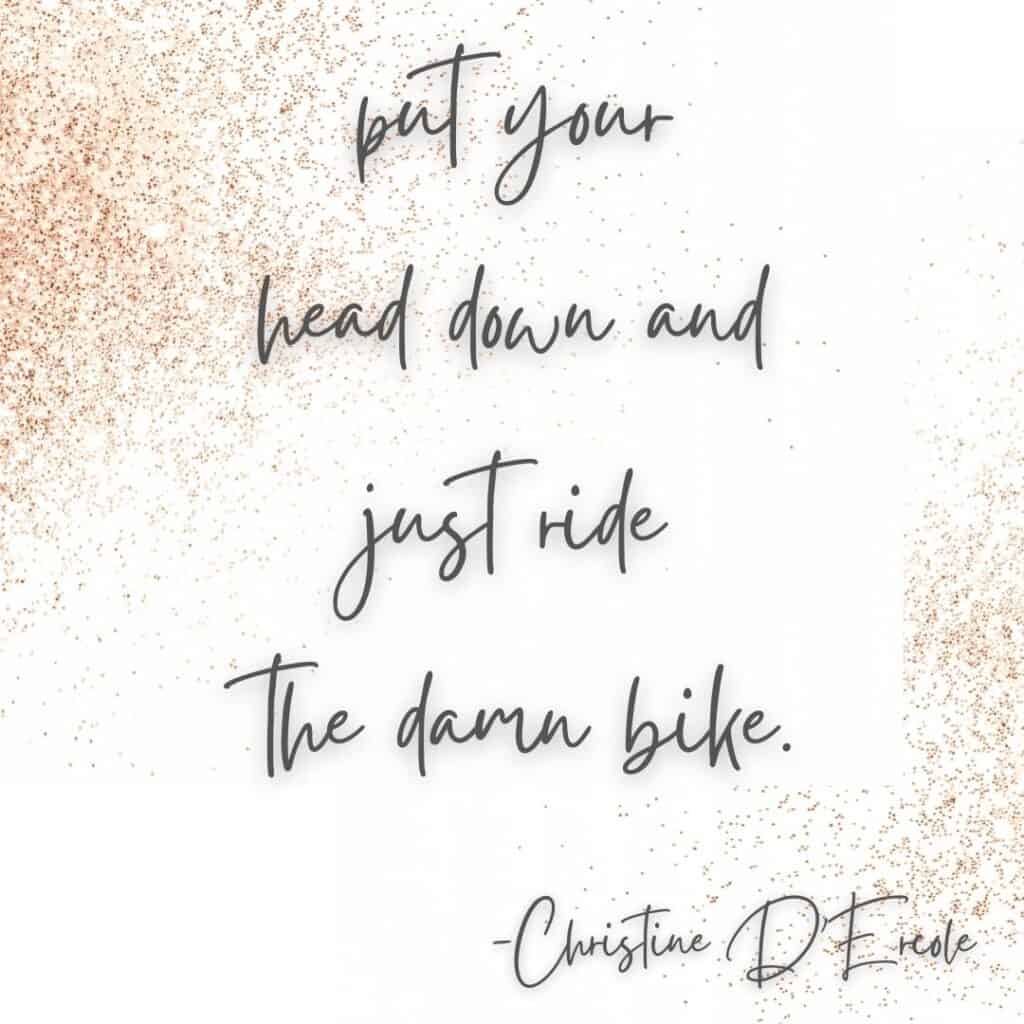 put your
head down and
just ride
the damn bike.
-Christine D'Ercole